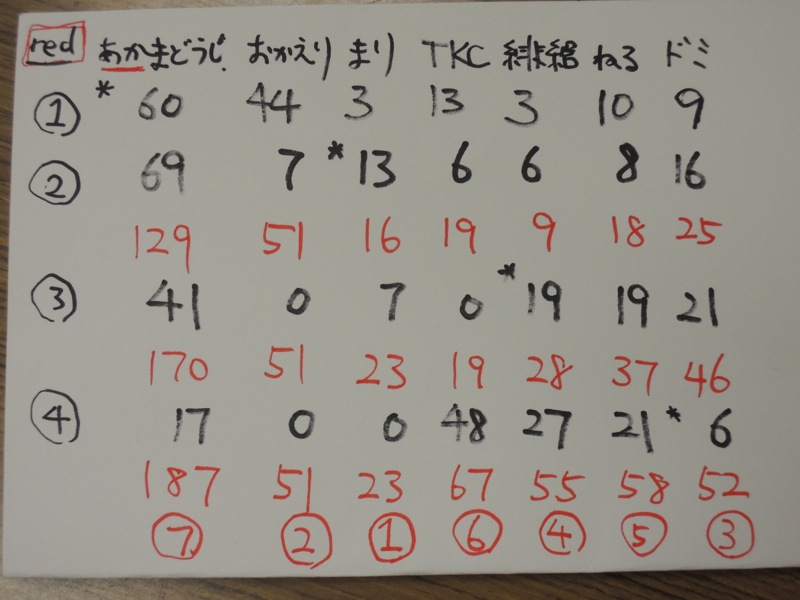 red あかまどうじ. おかえり まり TKC 緋紺 ねる ドミ
① * 60 44 3 13 3 10 9
② 69 7 * 13 6 6 8 16
129 51 16 19 9 18 25
③ 41 0 7 0 * 19 19 21
170 51 23 19 28 37 46
④ 17 0 0 48 27 21 * 6
187 51 23 67 55 58 52
⑦ ② ① ⑥ ④ ⑤ ③